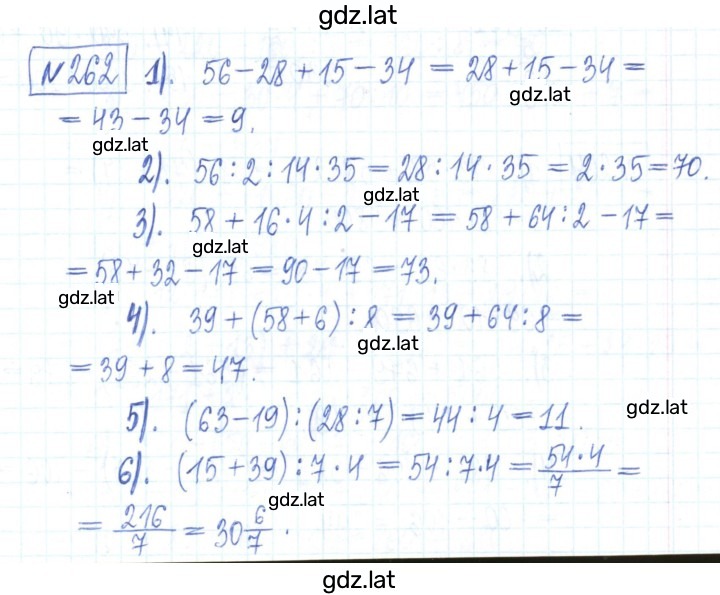 gdz.lat
№262 1). 56-28+15-34 = 28+15-34 =
gdz.lat
= 43-34 = 9.
gdz.lat
2). 56:2:14·35 = 28:14·35 = 2·35 = 70.
gdz.lat
3). 58+16·4:2-17 = 58+64:2-17 =
gdz.lat
= 58+32-17 = 90-17 = 73.
gdz.lat
4). 39+(58+6):8 = 39+64:8 =
gdz.lat
= 39+8 = 47.
5). (63-19):(28:7) = 44:4 = 11.
gdz.lat
6). (15+39):7·4 = 54:7·4 = 54·4/7 =
gdz.lat
= 216/7 = 30 6/7.
gdz.lat